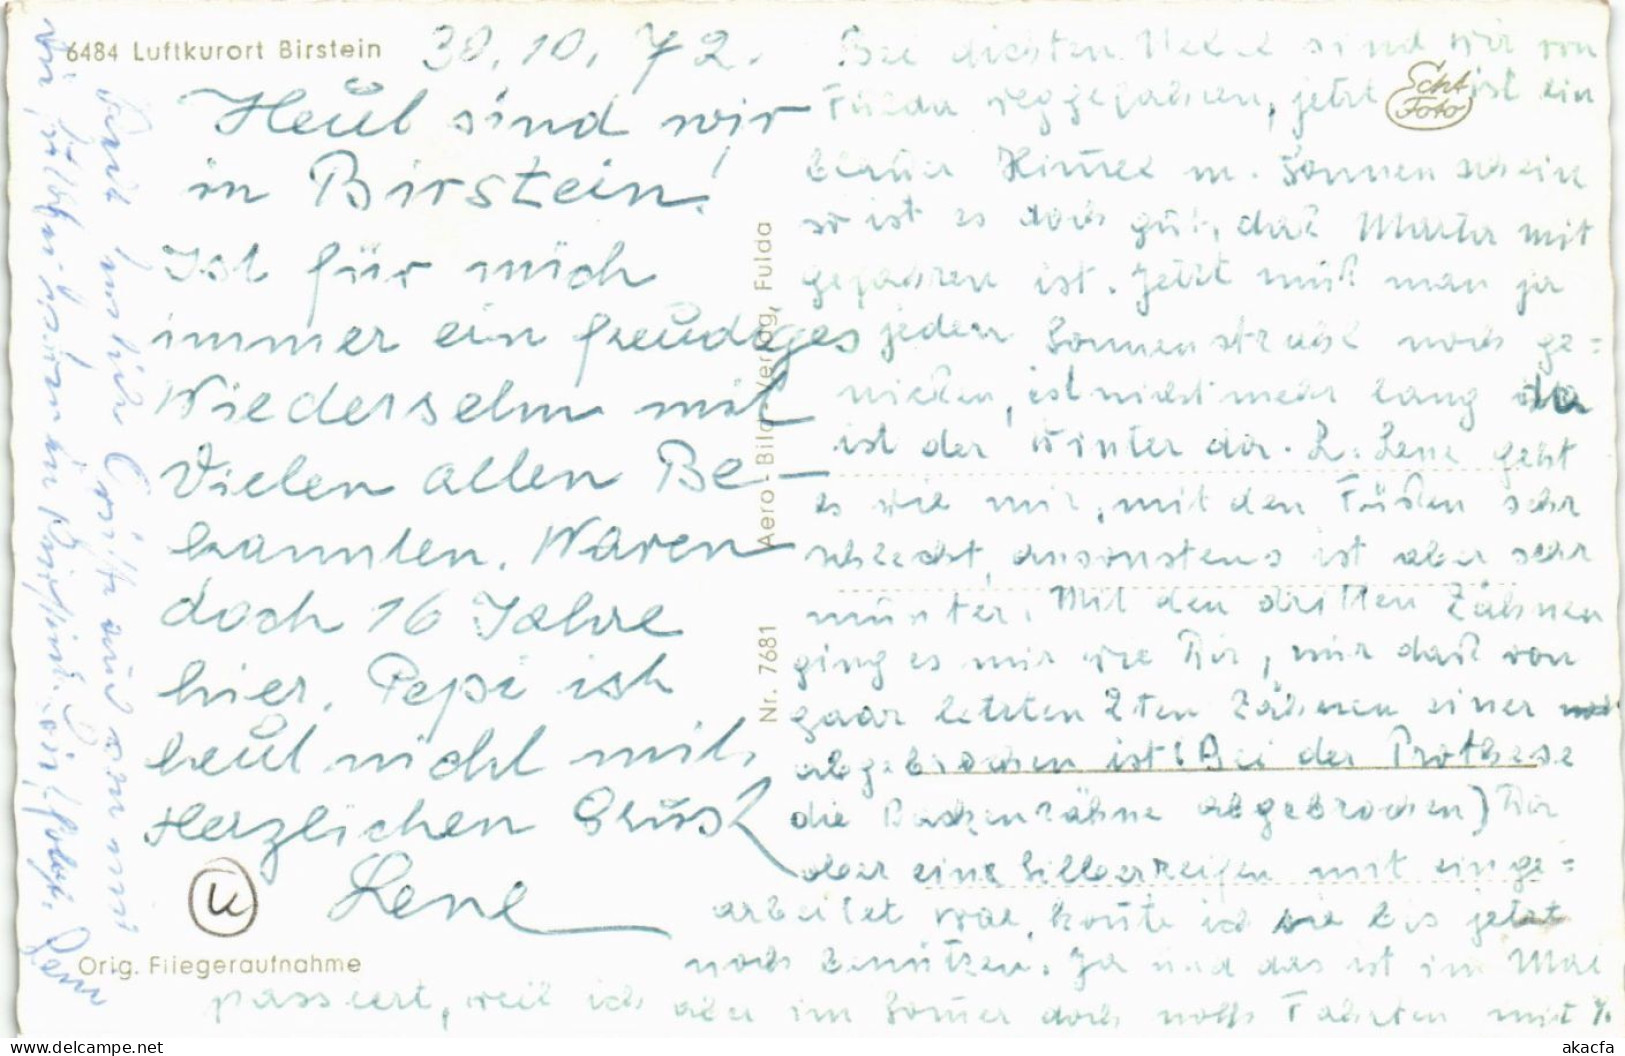 6484 Luftkurort Birstein
30.10.72.
Heut sind wir
in Birstein!
Ist für mich
immer ein freudiges
Wiedersehn mit
Vielen allen Be-
kannten. Waren
doch 16 Jahre
hier. Pepi ist
heut nicht mit.
Herzlichen Gruß
Lene
Orig. Fliegeraufnahme
Aero-Bild-Verlag, Fulda
Nr. 7681
Echt
Foto
Bei dichten Nebel sind wir von
Fulda weggefahren, jetzt ist ein
blauer Himel m. Sonnenschein
so ist es doch gut, daß Marta mit
gefahren ist. Jetzt muß man ja
jeden Sonnenstrahl noch ge=
nießen, ist nicht mehr lang da
ist der Winter da. L. Lene geht
es wie mir, mit den Füßen sehr
schlecht, ansonstens ist aber sehr
munter. Mit den dritten Zähnen
ging es mir wie Dir, mir daß von
gaar letzten 2ten Zähnen einer
abgebrochen ist (Bei der Prothese
die Backenzähne abgebrochen) Dir
aber eine Silberreifen mit einge=
arbeitet war, konte ich sie bis jetzt
noch benützen. Ja und das ist im Mai
passiert, weil ich aber im Somer doch noch Fahrten mit %
akacfa